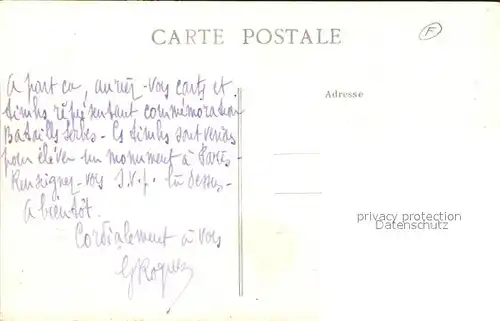 CARTE POSTALE
F
A part ca, auriez-vous carts et
timbs représentant commémoration
Batailles serbes - Cs timbs sont vendus
pour élever un monument à Paris -
Renseignez-vous S.V.p. là dessus -
A bientôt.
Cordialement à vous
Adresse
privacy protection
Datenschutz